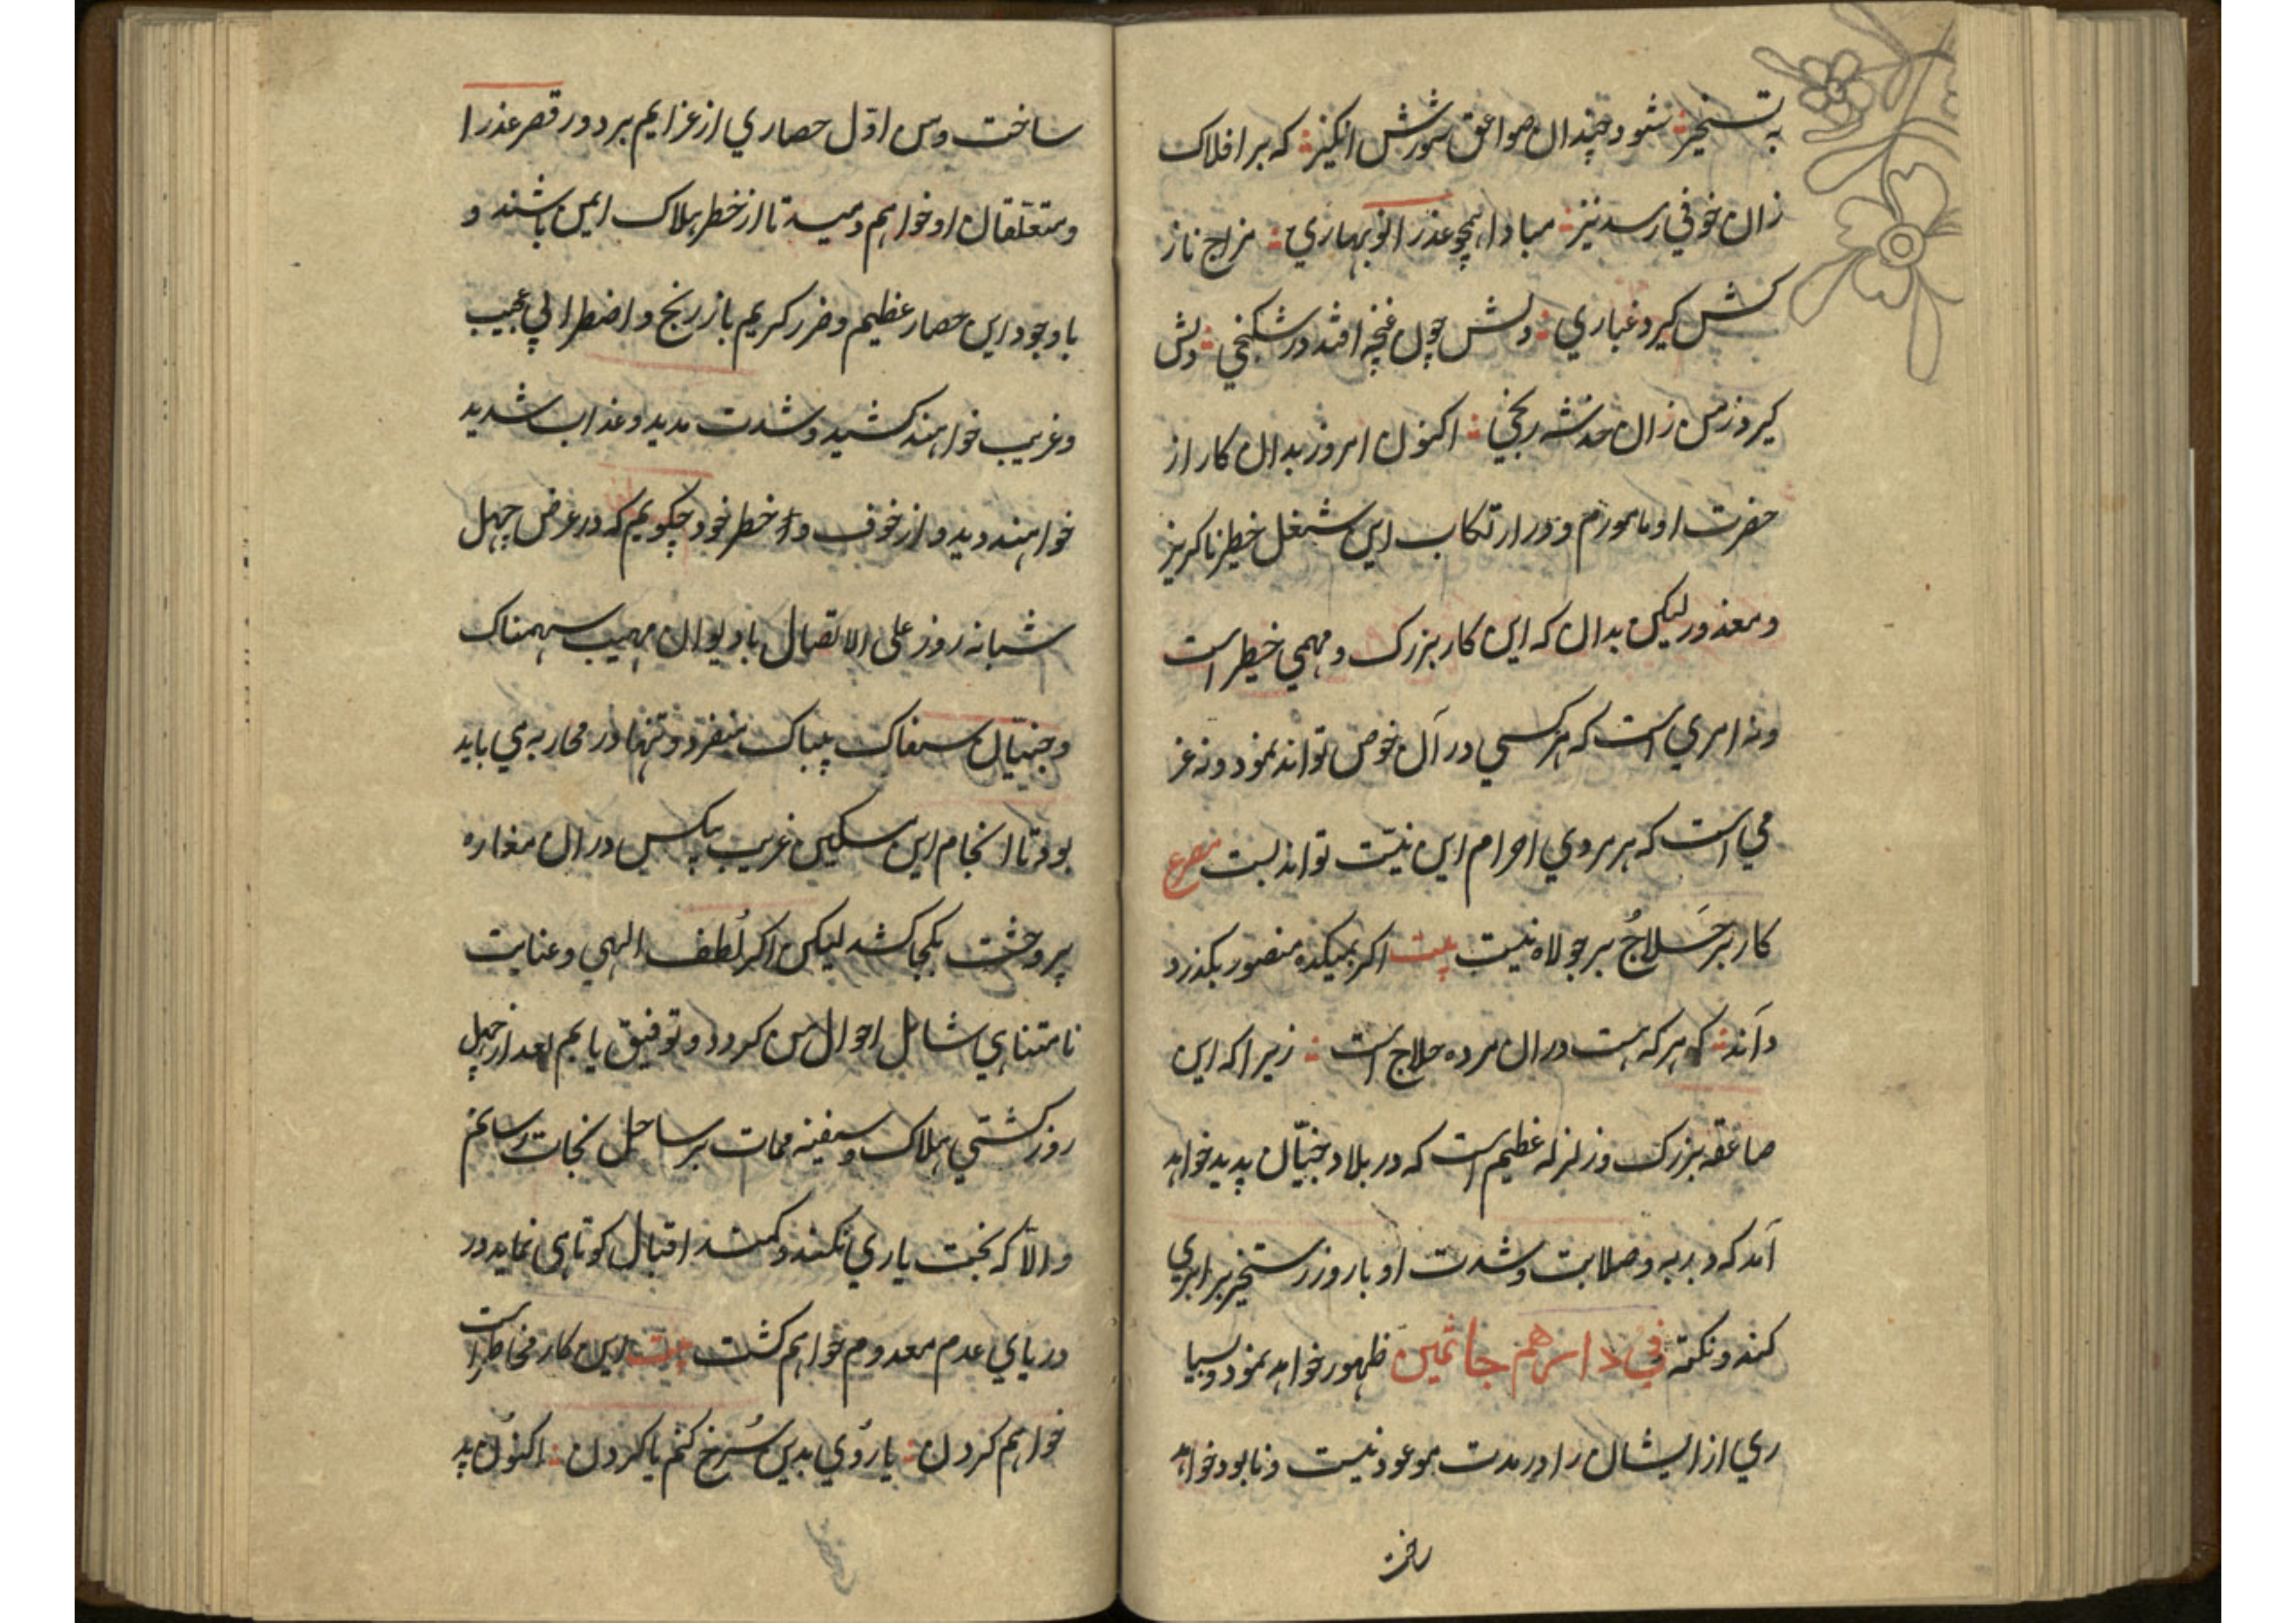 به تسخیر ؛ نشود چندان صواعق شورش انگیز ؛ که بر افلاک
زان خوفی رسد نیز ؛ مبادا همچو عذرا نوبهاری ؛ مزاج ناز
کش گیرد غباری ؛ دلش چون غنچه افتد در شکنجی ؛ دلش
گیرد ز من زان خدشه رنجی ؛ اکنون امروز بدان کار از
حضرت او مامورم و در ارتکاب این شغل خطیر ناگزیر
و معذور لیکن بدان که این کار بزرگ و مهمی خطیر است
و نه امری است که هر کسی در آن خوض تواند نمود و نه عز
می است که هر مروی احرام این نیت تواند بست مصرع
کار بر حَلاجُ بر جولاه نیست بیت اگر بمیکده منصور بگذرد
داند ؛ که هر که هست دران مرده حلاج است ؛ زیرا که این
صاعقه بزرگ و زلزله عظیم است که در بلاد جنیّان پدید خواهد
آمد که دبدبه و صلابت و شدت او با روز رستخیز برابری
کند و نکته فِی دارهم جاثمین ظهور خواهد نمود و بسیا
ری از ایشان را در مدت موعود نیست و نابود خواهد
ساخت
ساخت و من اوّل حصاری از عزایم بر دور قصر عذرا
و متعلقان او خواهم دمید تا از خطر هلاک ایمن باشند و
باوجود این حصار عظیم و ضرر کریم باز رنج و اضطرابی عجیب
و غریب خواهند کشید و شدت مدید و عذاب شدید
خواهند دید و از خوف و خطر خود چگویم که در عرض چهل
شبانه روز علی الاتصال با دیوان مهیب سهمناک
و جنیّان سفاک بیباک منفرد و تنها در محاربه می باید
بود تا انجام این مسکین غریب بیکس دران مغاره
پر وحشت بکجا کشد لیکن اگر لُطف الهی و عنایت
نامتناهی شامل احوال من گردد و توفیق یابم بعد از چهل
روز کشتی هلاک و سفینه ممات بر ساحل نجات رسانم
و الّا که بخت یاری نکند و کمند اقبال کوتاهی نماید در
دریای عدم معدوم خواهم گشت بیت این کار مخاطر است
خواهم کردن ؛ یا روُی بدین سُرخ کنم یا گردن ؛ اکنوُن بد